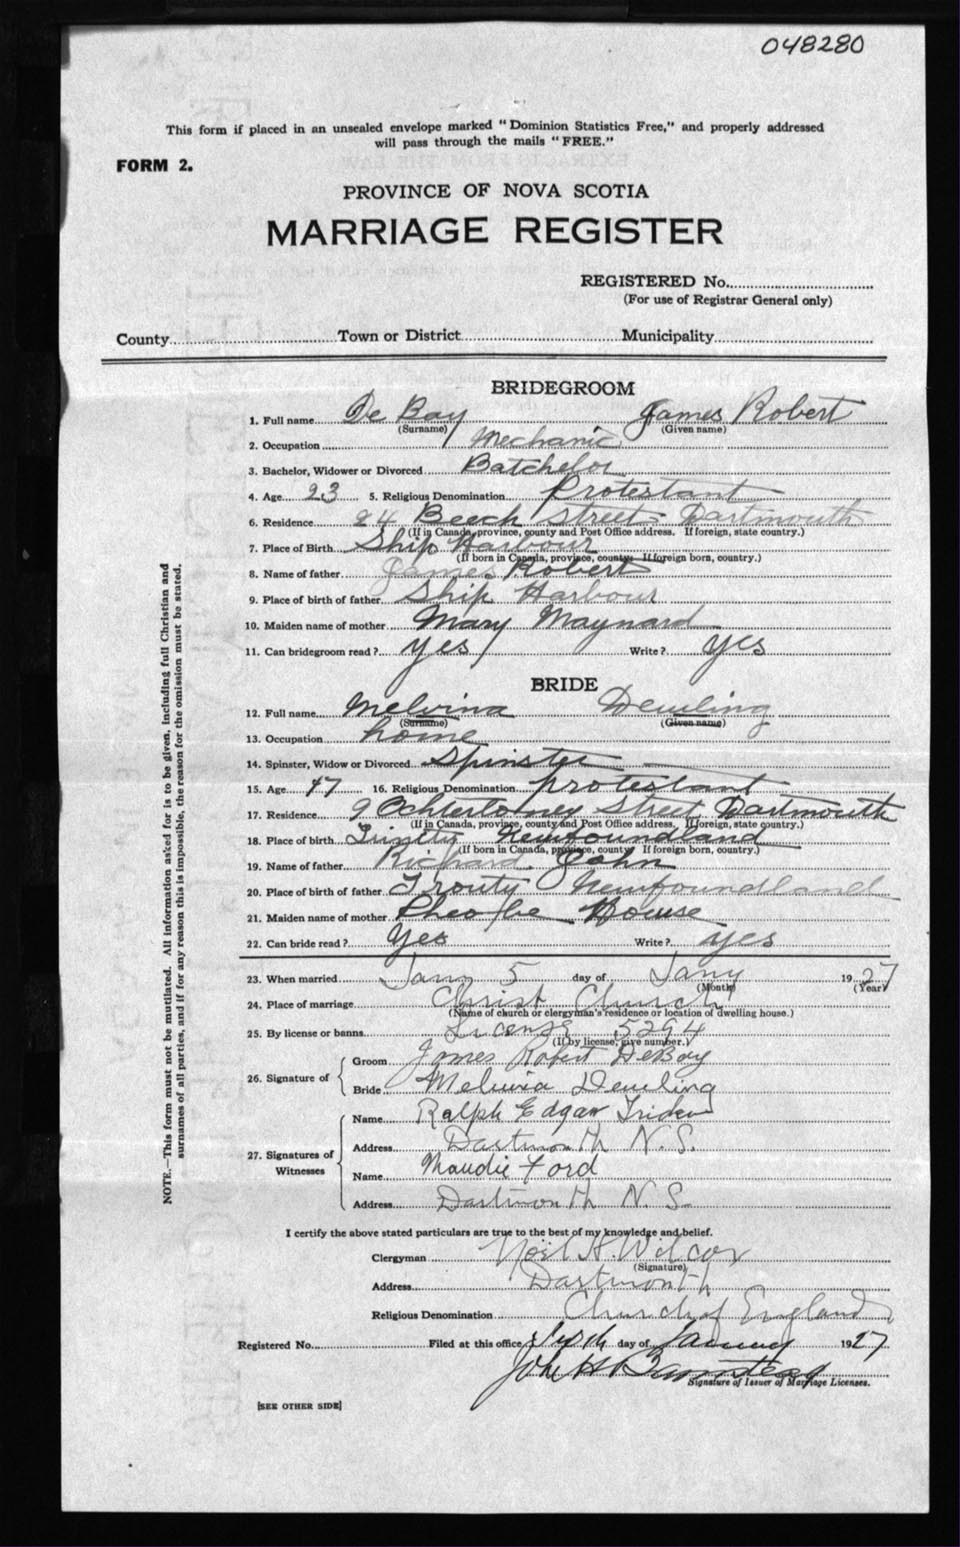 048280
This form if placed in an unsealed envelope marked "Dominion Statistics Free," and properly addressed
will pass through the mails "FREE."
FORM 2.
PROVINCE OF NOVA SCOTIA
MARRIAGE REGISTER
REGISTERED No.
(For use of Registrar General only)
County Town or District Municipality
BRIDEGROOM
1. Full name De Bay James Robert
(Surname) (Given name)
2. Occupation Mechanic
3. Bachelor, Widower or Divorced Batchelor
4. Age 23 5. Religious Denomination Protestant
6. Residence 24 Beech Street Dartmouth
(If in Canada, province, county and Post Office address. If foreign, state country.)
7. Place of Birth Ship Harbour
(If born in Canada, province, county. If foreign born, country.)
8. Name of father James Robert
9. Place of birth of father Ship Harbour
10. Maiden name of mother Mary Maynard
11. Can bridegroom read? yes Write? yes
BRIDE
12. Full name Melvina
(Surname) (Given name)
13. Occupation home
14. Spinster, Widow or Divorced Spinster
15. Age 16. Religious Denomination protestant
17. Residence 9 Ochterloney Street Dartmouth
(If in Canada, province, county and Post Office address. If foreign, state country.)
18. Place of birth Trinity Newfoundland
(If born in Canada, province, county. If foreign born, country.)
19. Name of father Richard John
20. Place of birth of father Trouty Newfoundland
21. Maiden name of mother Pheobe House
22. Can bride read? Yes Write? yes
23. When married 5 day of Jany 1927
(Month) (Year)
24. Place of marriage Christ Church
(Name of church or clergyman's residence or location of dwelling house.)
25. By license or banns License 5294
(If by license, give number.)
26. Signature of Groom James Robert DeBay
Bride
27. Signatures of Witnesses Name Ralph Edgar
Address Dartmouth N.S.
Name Maudie Ford
Address Dartmouth N.S.
I certify the above stated particulars are true to the best of my knowledge and belief.
Clergyman Noel H. Wilcox
(Signature)
Address Dartmouth
Religious Denomination Church of England
Registered No. Filed at this office day of January 1927
John H
Signature of Issuer of Marriage Licenses.
[SEE OTHER SIDE]
NOTE.—This form must not be mutilated. All information asked for is to be given, including full Christian and
surnames of all parties, and if for any reason this is impossible, the reason for the omission must be stated.